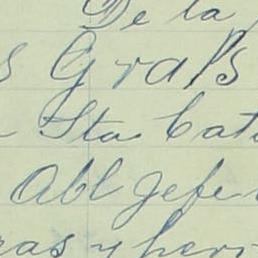 De la
s Grals
Sta Cat
Abl Jefe
ras y heri